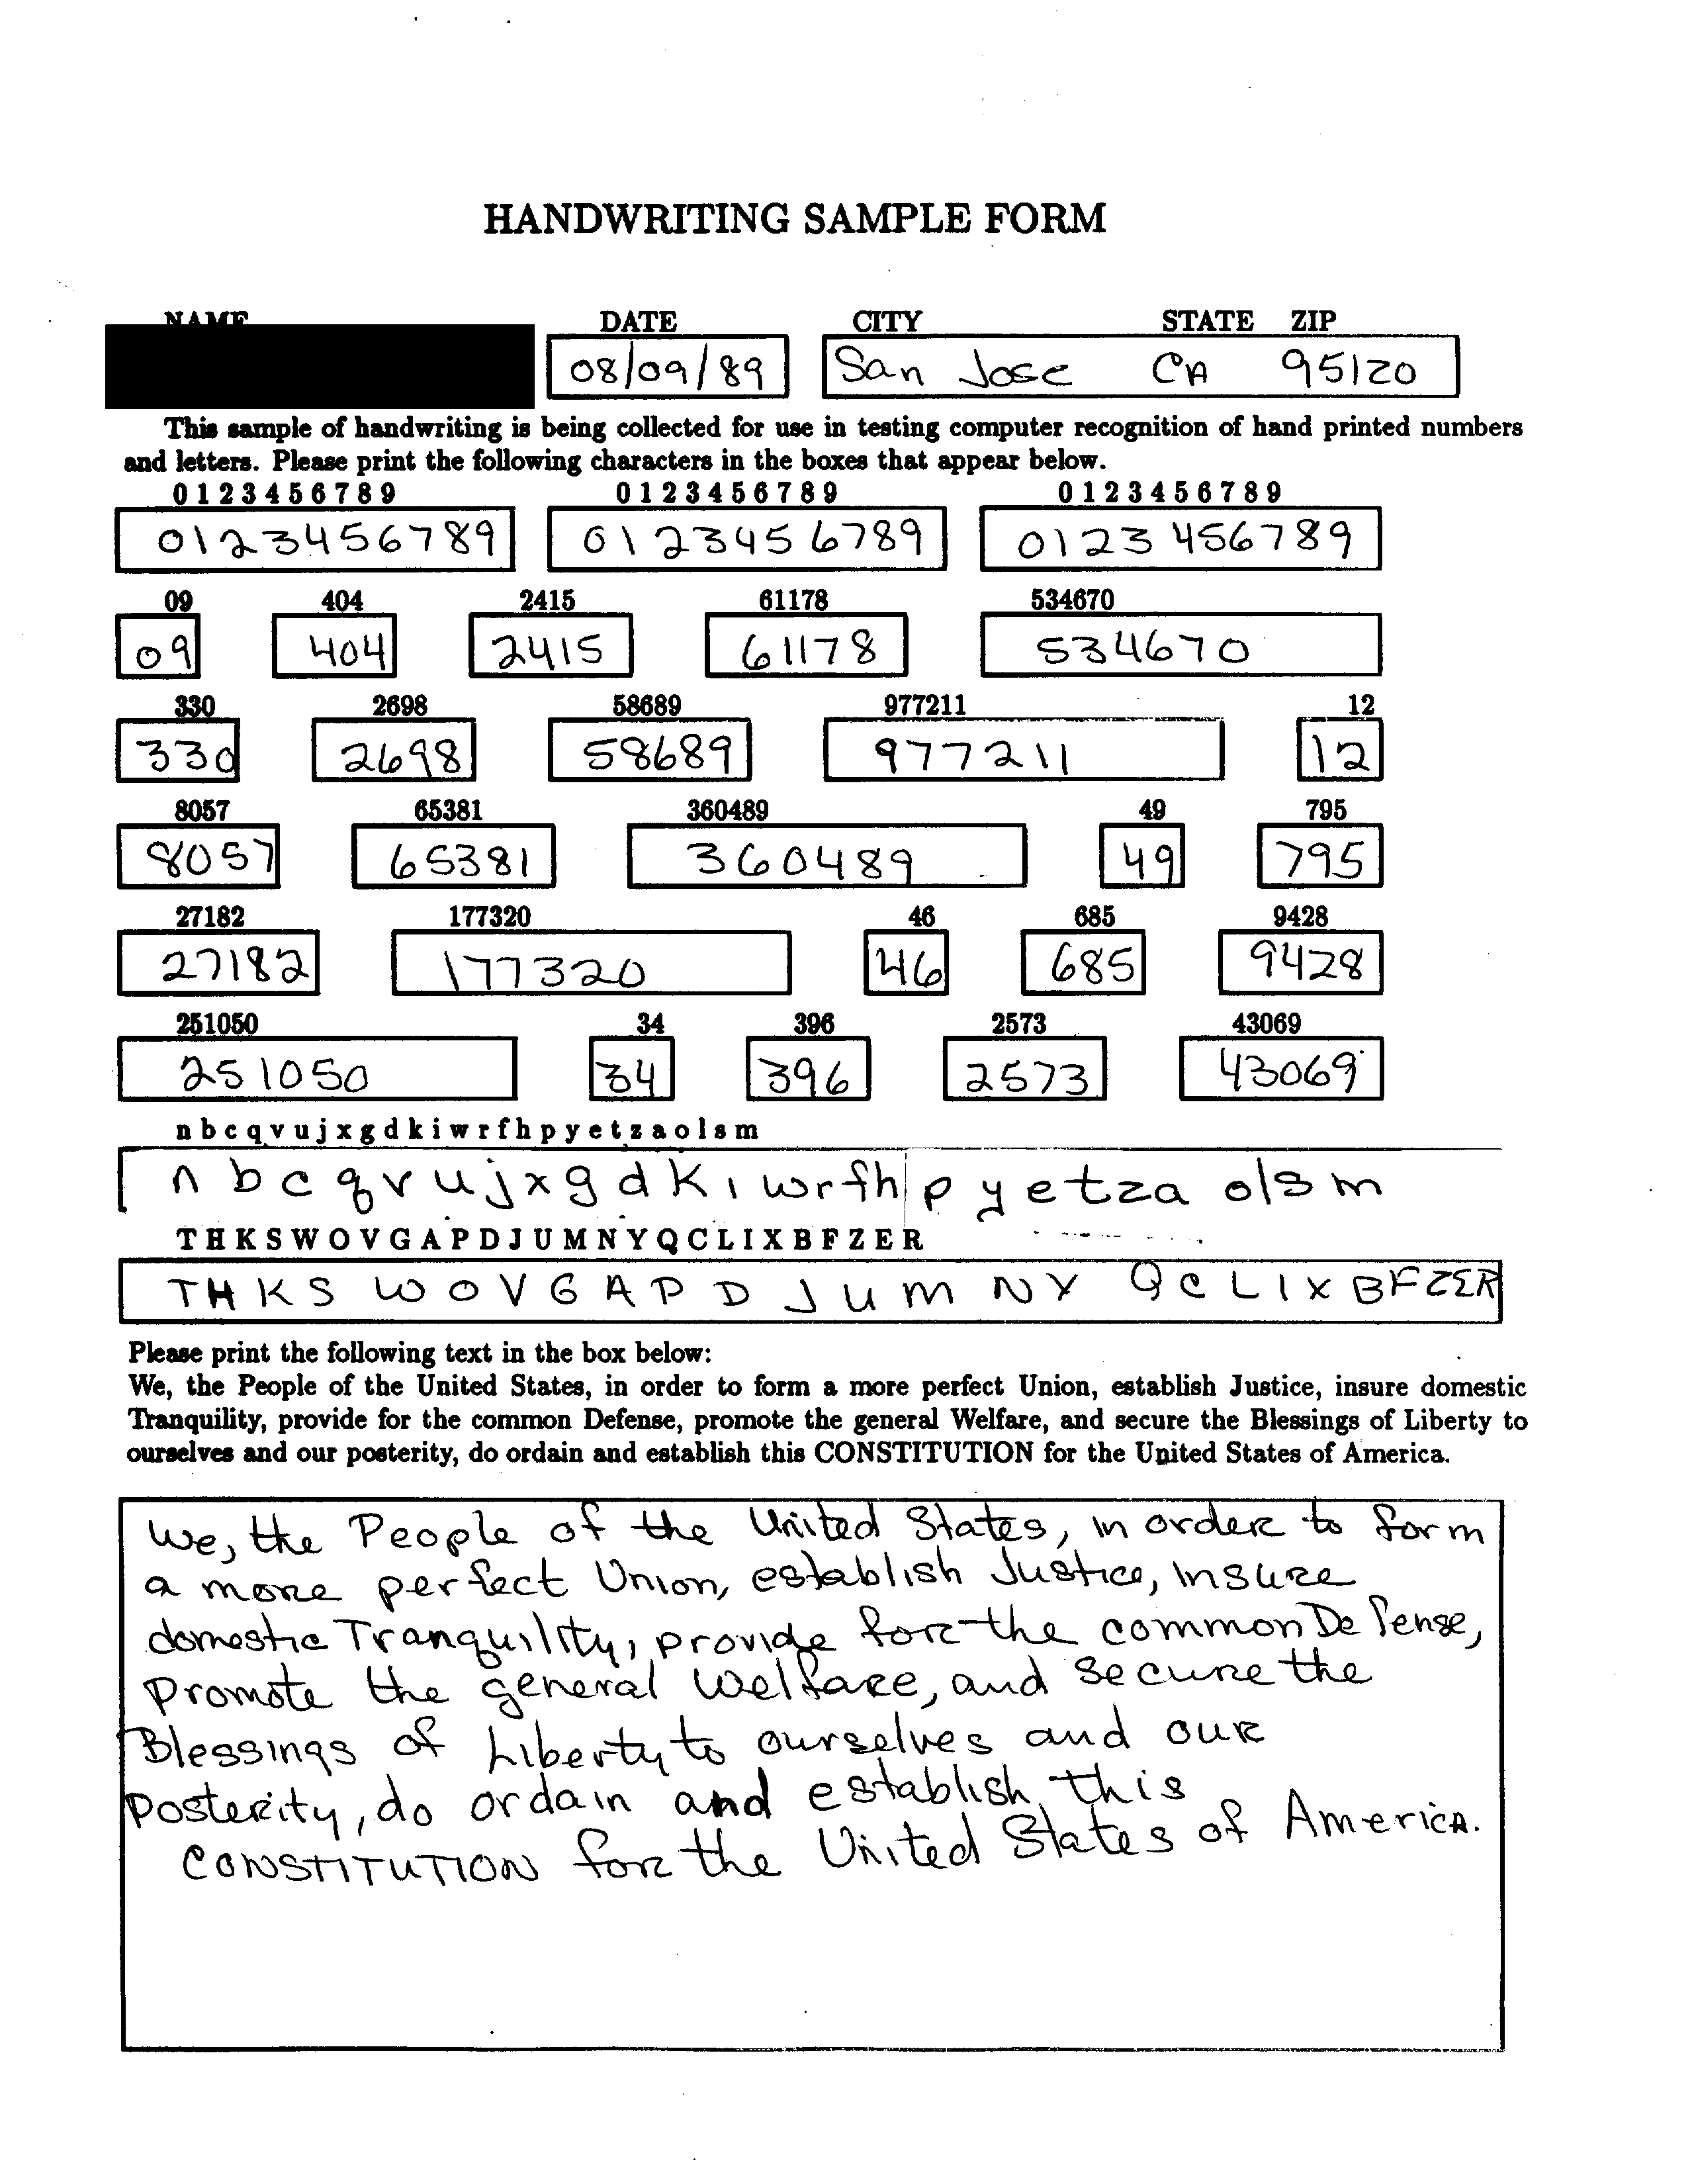 HANDWRITING SAMPLE FORM
NAME DATE CITY STATE ZIP
08/09/89 San Jose CA 95120
This sample of handwriting is being collected for use in testing computer recognition of hand printed numbers
and letters. Please print the following characters in the boxes that appear below.
0 1 2 3 4 5 6 7 8 9 0 1 2 3 4 5 6 7 8 9 0 1 2 3 4 5 6 7 8 9
0123456789 0123456789 0123456789
09 404 2415 61178 534670
09 404 2415 61178 534670
330 2698 58689 977211 12
330 2698 58689 977211 12
8057 65381 360489 49 795
8057 65381 360489 49 795
27182 177320 46 685 9428
27182 177320 46 685 9428
251050 34 396 2573 43069
251050 34 396 2573 43069
n b c q v u j x g d k i w r f h p y e t z a o l s m
n b c q v u j x g d k i w r f h p y e t z a o l s m
T H K S W O V G A P D J U M N Y Q C L I X B F Z E R
T H K S W O V G A P D J U M N Y Q C L I X B F Z E R
Please print the following text in the box below:
We, the People of the United States, in order to form a more perfect Union, establish Justice, insure domestic
Tranquility, provide for the common Defense, promote the general Welfare, and secure the Blessings of Liberty to
ourselves and our posterity, do ordain and establish this CONSTITUTION for the United States of America.
We, the People of the United States, in order to form
a more perfect Union, establish Justice, insure
domestic Tranquility, provide for the common Defense,
promote the general Welfare, and secure the
Blessings of Liberty to ourselves and our
posterity, do ordain and establish this
CONSTITUTION for the United States of America.